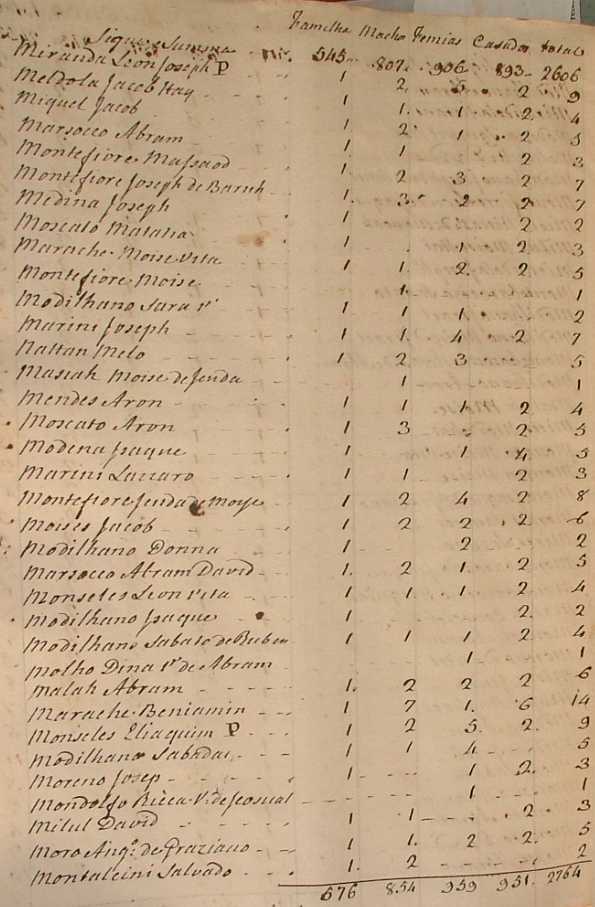 Famelha Macho Femias Casados total
Sigue Summa 545 807 906 893 2606
Miranda Leon Joseph P 1 2 5 2 9
Meldola Jacob Hay 1 1. 1 2 4
Miquel Jacob 1. 2 1 2 5
Marsocco Abram 1. 1 2 3
Montefiore Massaod 1 2 3 2 7
Montefiore Joseph de Baruh 1. 3 2 2 7
Medina Joseph 1 2 2
Moscato Matatia 1 1 2 3
Marache Moise Vita 1 1. 2 2 5
Montefiore Moise 1 1
Modilhano Sara vª 1 1 1 2
Marini Joseph 1 1. 4 2 7
Nattan Melo 1 2 3 5
Masiah Moise de Jeuda 1 1
Mendes Aron 1 1 1 2 4
Moscato Aron 1 3 2 5
Modena Isaque 1 1 4 5
Marini Lazzaro 1 1 2 3
Montefiore Jeuda de Moyse 1 2 4 2 8
Moises Jacob 1 2 2 2 6
Modilhano Donna 1 2 2
Marsocco Abram David 1. 2 1. 2 5
Monseles Leon Vita 1 1 1 2 4
Modilhano Isaque 1 2 2
Modilhano Sabato de Ruben 1 1 1 2 4
Molho Dina Vª de Abram 1 1
Malah Abram 1. 2 2 2 6
Marache Beniamin 1 7 1. 6 14
Monseles Eliaquim P 1 2 5. 2. 9
Modilhano Sabadai 1 1 4 5
Moreno Josep 1 1 2. 3
Mondolfo Ricca Vª de 1 1
Milul David 1 1 2 3
Moro Angº de Graziano 1 1. 2 2. 5
Montalcini Salvado 1. 2 2
576 854 959 951. 2764